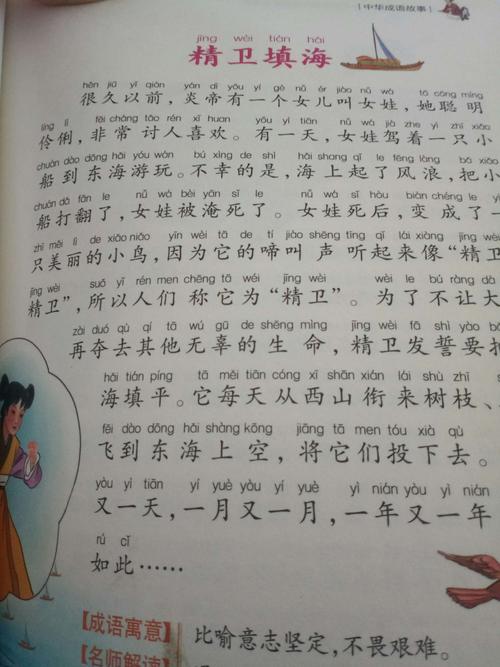 [中华成语故事]
jīng wèi tián hǎi
精卫填海
hěn jiǔ yǐ qián yán dì yǒu yí gè nǚ ér jiào nǚ wá tā cōng míng
很久以前，炎帝有一个女儿叫女娃，她聪明
líng lì fēi cháng tǎo rén xǐ huan yǒu yì tiān nǚ wá jià zhe yì zhī xiǎo
伶俐，非常讨人喜欢。有一天，女娃驾着一只小
chuán dào dōng hǎi yóu wán bú xìng de shì hǎi shang qǐ le fēng làng bǎ xiǎo
船到东海游玩。不幸的是，海上起了风浪，把小
chuán dǎ fān le nǚ wá bèi yān sǐ le nǚ wá sǐ hòu biàn chéng le yì
船打翻了，女娃被淹死了。女娃死后，变成了一
zhī měi lì de xiǎo niǎo yīn wèi tā de tí jiào shēng tīng qǐ lái xiàng jīng wèi
只美丽的小鸟，因为它的啼叫声听起来像“精卫
jīng wèi suǒ yǐ rén men chēng tā wéi jīng wèi wèi le bú ràng dà
精卫”，所以人们称它为“精卫”。为了不让大
zài duó qù qí tā wú gū de shēng mìng jīng wèi fā shì yào bǎ
再夺去其他无辜的生命，精卫发誓要把
hǎi tián píng tā měi tiān cóng xī shān xián lái shù zhī
海填平。它每天从西山衔来树枝、
fēi dào dōng hǎi shàng kōng jiāng tā men tóu xià qù
飞到东海上空，将它们投下去。
yòu yì tiān yí yuè yòu yí yuè yì nián yòu yì nián
又一天，一月又一月，一年又一年
rú cǐ
如此……
【成语寓意】 比喻意志坚定，不畏艰难。
【名师解读】